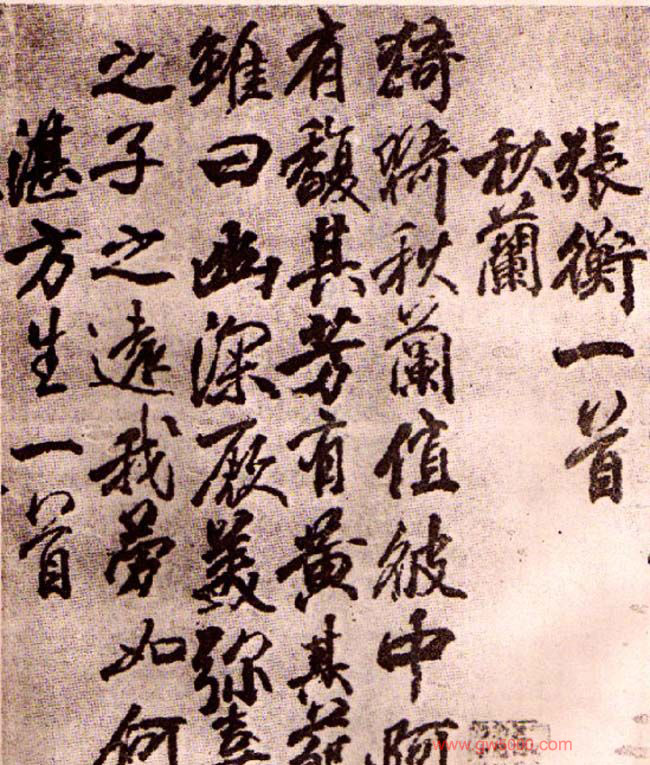 張衡一首
秋蘭
猗猗秋蘭值彼中阿
有馥其芳有黃其葩
雖曰幽深厥美弥嘉
之子之遠我勞如何
湛方生一首